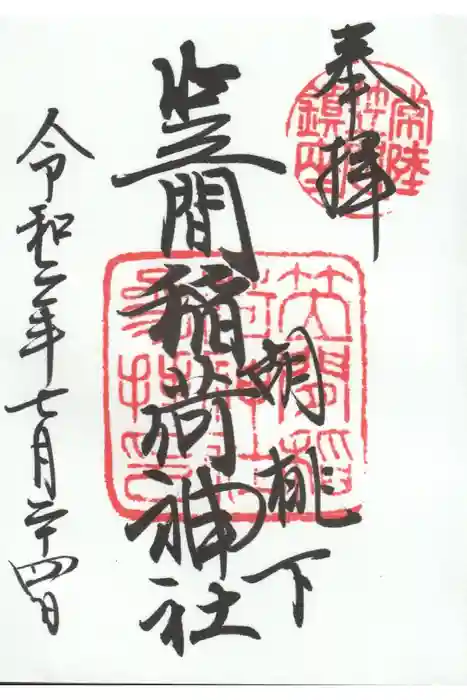 奉拝
常陸
笠間
鎮座
胡桃下
笠間稲荷神社
令和二年七月二十四日